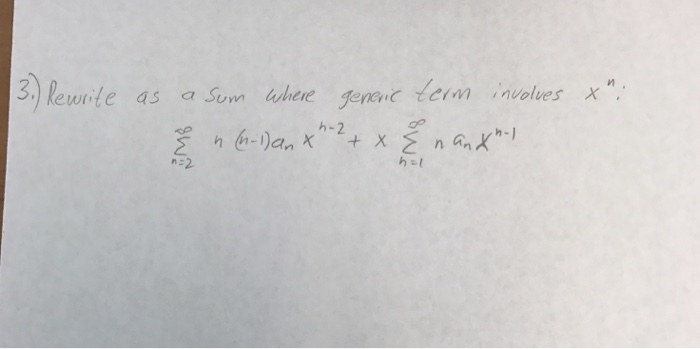 3.) Rewrite as a sum where generic term involves xⁿ:
∞ ∑ n=2 n (n-1)aₙ xⁿ⁻² + x ∞ ∑ n=1 n aₙ xⁿ⁻¹